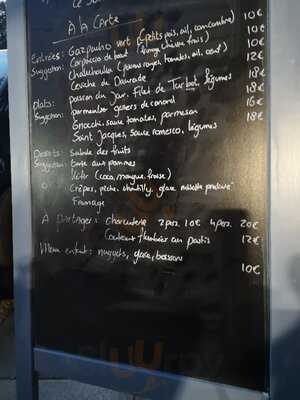 Le S
À la Carte
Entrées: Gazpacho vert (petits pois, ail, concombre) 10€
Suggestion: Carpaccio de boeuf (fromage chèvre frais) 10€
Chakchouka (poivrons rouges, tomates, ail, oeuf) 10€
Ceviche de Daurade 12€
Plats: poisson du jour, Filet de Turbot, légumes 18€
Suggestion: parmentier gésiers de canard 18€
Gnocchi, sauce tomates, parmesan 16€
Saint Jacques, sauce romesco, légumes 18€
Desserts: Salade des fruits
Suggestion: tarte aux pommes
(coco, mangue, fraise)
Crêpes, pêche, chantilly, glace
Fromage
À partager: charcuterie 2 pers. 10€ 4 pers. 20€
Couteaux flambées au pastis 12€
Menu enfant: nuggets, glace, boisson
10€